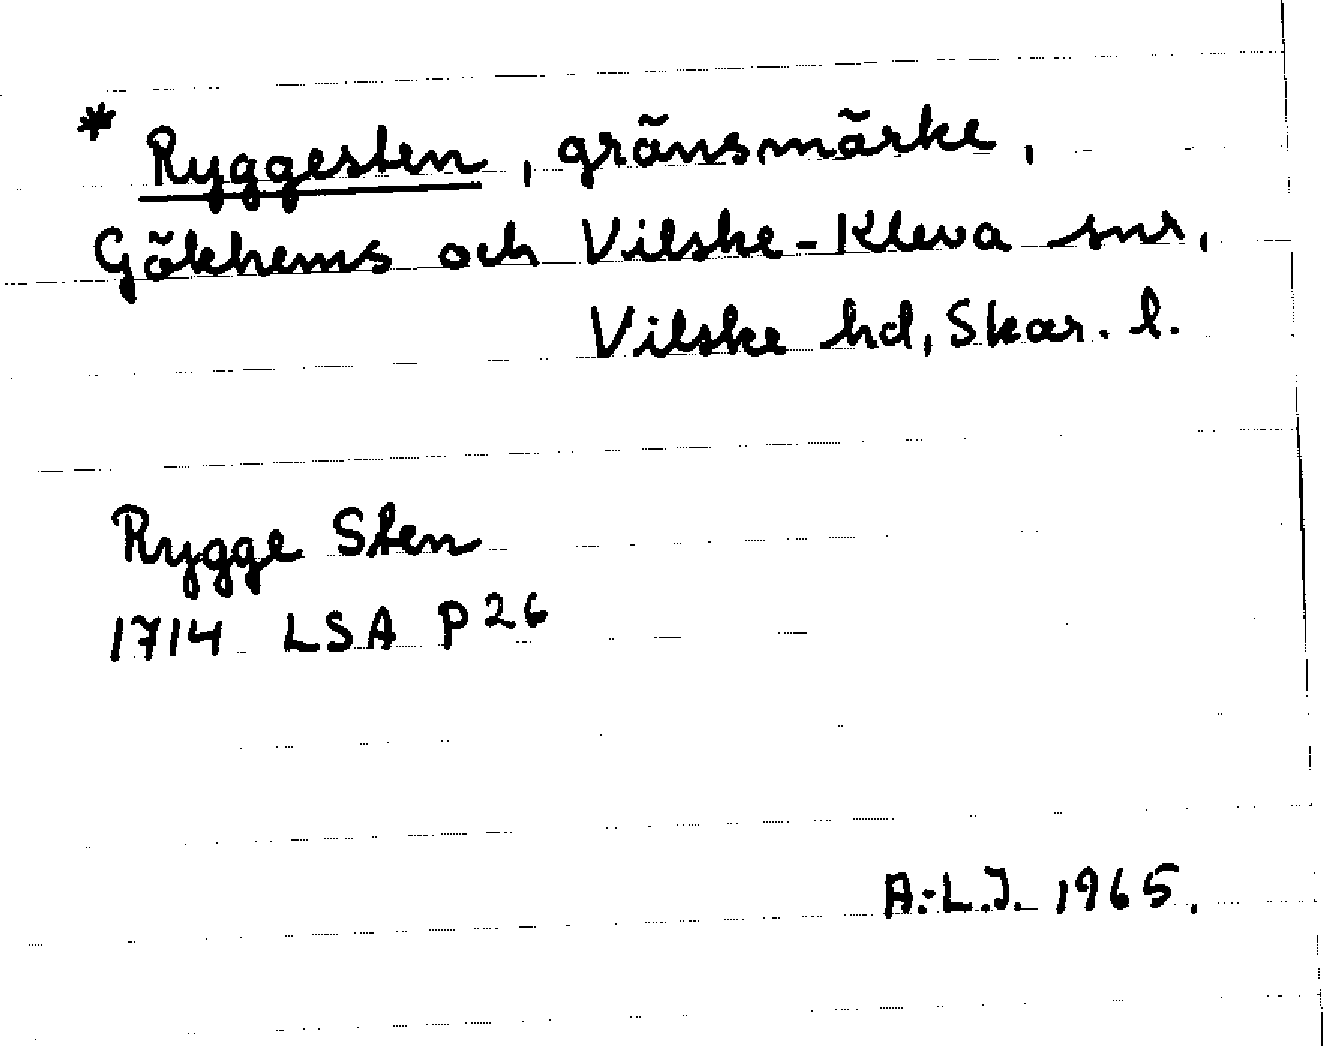 * Ryggesten, gränsmärke,
Gökhems och Vilske-Kleva snr,
Vilske hd, Skar. l.
Rygge Sten
1714 LSA P 26
A.-L.J. 1965.